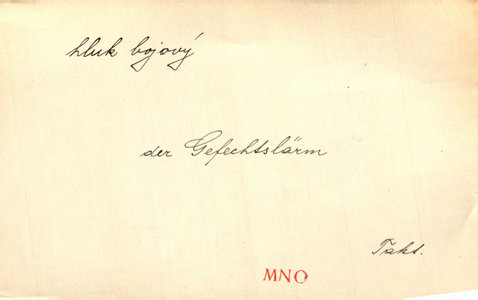 hluk bojový
der Gefechtslärm
Takt.
MNO